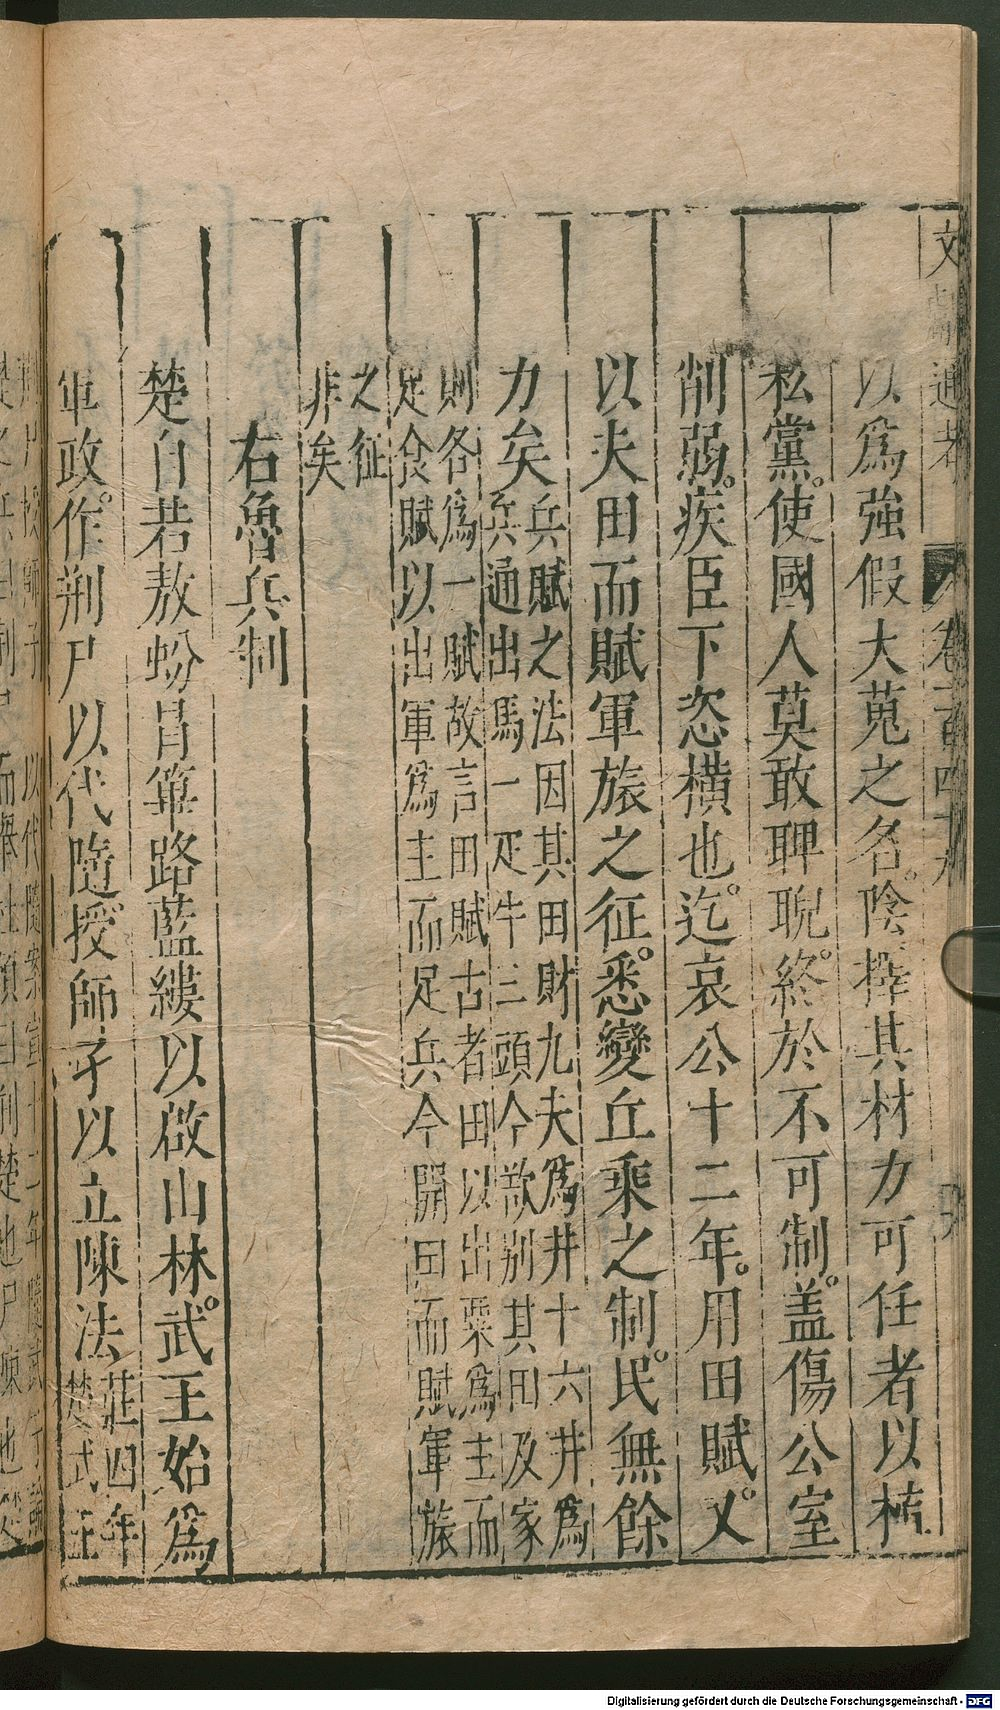 文獻通考 卷百四十九
以爲強假大蒐之名陰擇其材力可任者以植
私黨使國人莫敢睥睨終於不可制盖傷公室
削弱疾臣下恣橫也迄哀公十二年用田賦又
以夫田而賦軍旅之征悉變丘乘之制民無餘
力矣
兵賦之法因其田財九夫爲井十六井爲
兵通出馬一疋牛三頭今欲别其田及家
則各爲一賦故言田賦古者田以出粟爲主而
足食賦以出軍爲主而足兵今開田而賦軍旅
之征
非矣
右魯兵制
楚自若敖蚡冒篳路藍縷以啟山林武王始爲
軍政作荆尸以代隨授師孑以立陳法
莊四年
楚武王
Digitalisierung gefördert durch die Deutsche Forschungsgemeinschaft - DFG